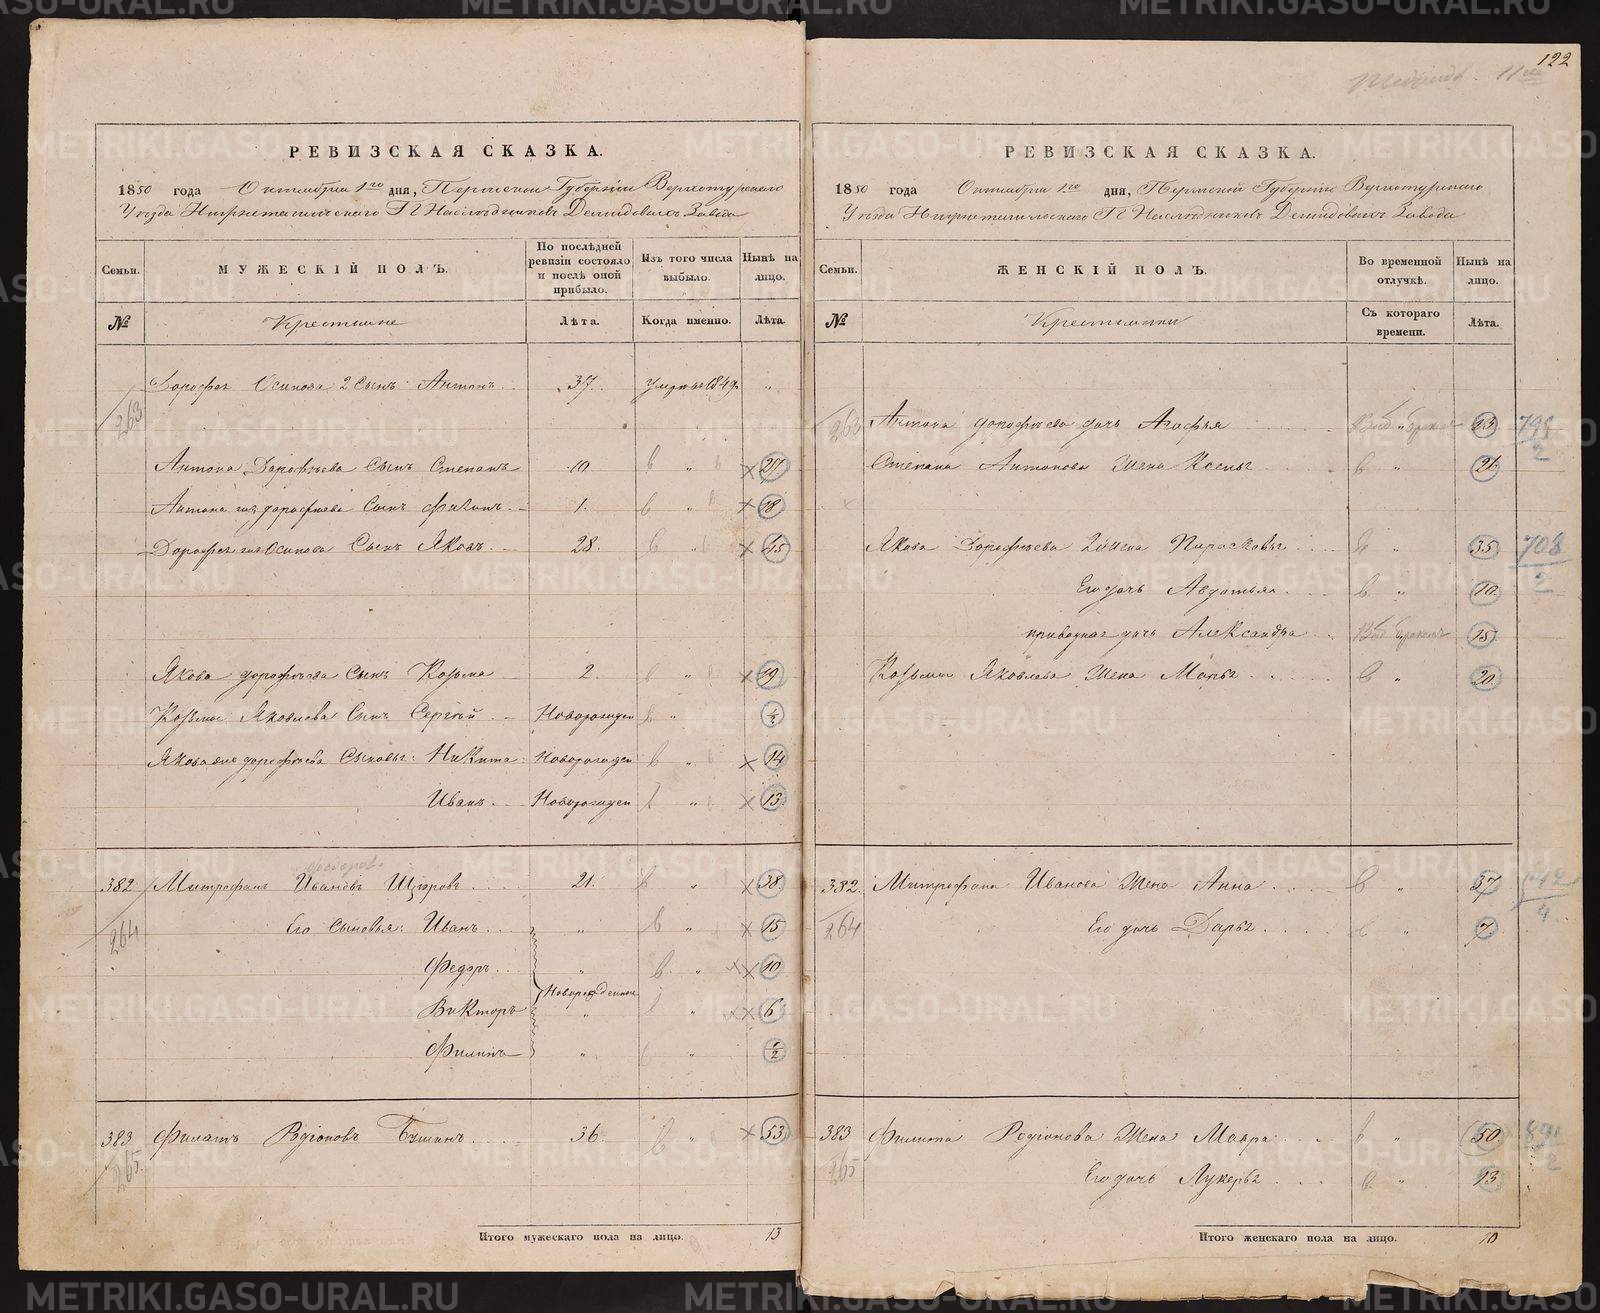 122
РЕВИЗСКАЯ СКАЗКА.
1850 года Октября 1го дня, Пермской Губернiи Верхотурскаго
Уѣзда Нижнетагильскаго Г Наслѣдниковъ Демидовыхъ Завода
Семьи.
МУЖЕСКІЙ ПОЛЪ.
По послѣдней ревизіи состояло и послѣ оной прибыло.
Изъ того числа выбыло.
Нынѣ на лицо.
№
Крестьяне
Лѣта.
Когда именно.
Лѣта.
Дорофея Осипова 2 Сынъ Антонъ 37. умръ 1849 "
263
Антона Дорофѣева Сынъ Степанъ 10 " 27
Антона же дорофѣева Сынъ 1. " 18
Дорофея же Осипова Сынъ Яковъ 28. " 45
Якова дорофѣева Сынъ Козьма 2. " 19
Козьмы Яковлева Сынъ Сергѣй Новорожден " ½
Якова же дорофѣева Сыновья: Никита Новорожден " 14
Иванъ Новорожден " 13
382 Митрофанъ Ивановъ Щуровъ 21. " 38
264 Его Сыновья: Иванъ " " 15
Федоръ " " 10
Новорожденные
Викторъ " " 6
Филипъ " " ½
383 Филатъ Родіоновъ 36. " 53
265
Итого мужескаго пола на лицо. 13
РЕВИЗСКАЯ СКАЗКА.
1850 года Октября 1го дня, Пермской Губернiи Верхотурскаго
Уѣзда Нижнетагильскаго Г Наслѣдниковъ Демидовыхъ Завода
Семьи.
ЖЕНСКІЙ ПОЛЪ.
Во временной отлучкѣ.
Нынѣ на лицо.
№
Крестьянки
Съ котораго времени.
Лѣта.
263 Антона дорофѣева дочь Агафья " 23
Степана Антонова Жена Ксенья " 21
Якова Дорофѣева 2 Жена Парасковья " 35 708/2
Его дочь Авдотья " 10
приводная дочь Александра 15
Козьмы Яковлева Жена Марья " 20
382. Митрофана Иванова Жена Анна " 37
264 Его дочь Дарья " 7
383 Филата Родіонова Жена Мавра " 50
265 Его дочь Лукерья " 13
Итого женскаго пола на лицо. 10
METRIKI.GASO-URAL.RU